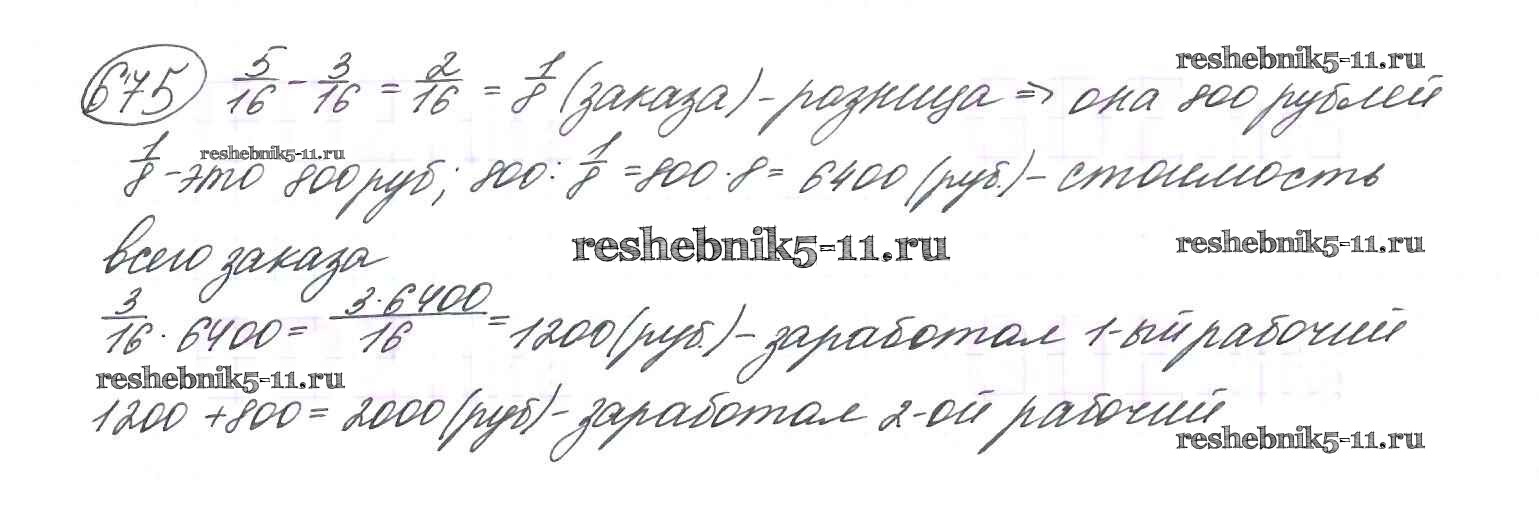 reshebnik5-11.ru
675 5/16 - 3/16 = 2/16 = 1/8 (заказа) - разница => она 800 рублей
reshebnik5-11.ru
1/8 - это 800 руб; 800 : 1/8 = 800 · 8 = 6400 (руб.) - стоимость
всего заказа
reshebnik5-11.ru
reshebnik5-11.ru
3/16 · 6400 = 3·6400/16 = 1200 (руб.) - заработал 1-ый рабочий
reshebnik5-11.ru
1200 + 800 = 2000 (руб) - заработал 2-ой рабочий
reshebnik5-11.ru